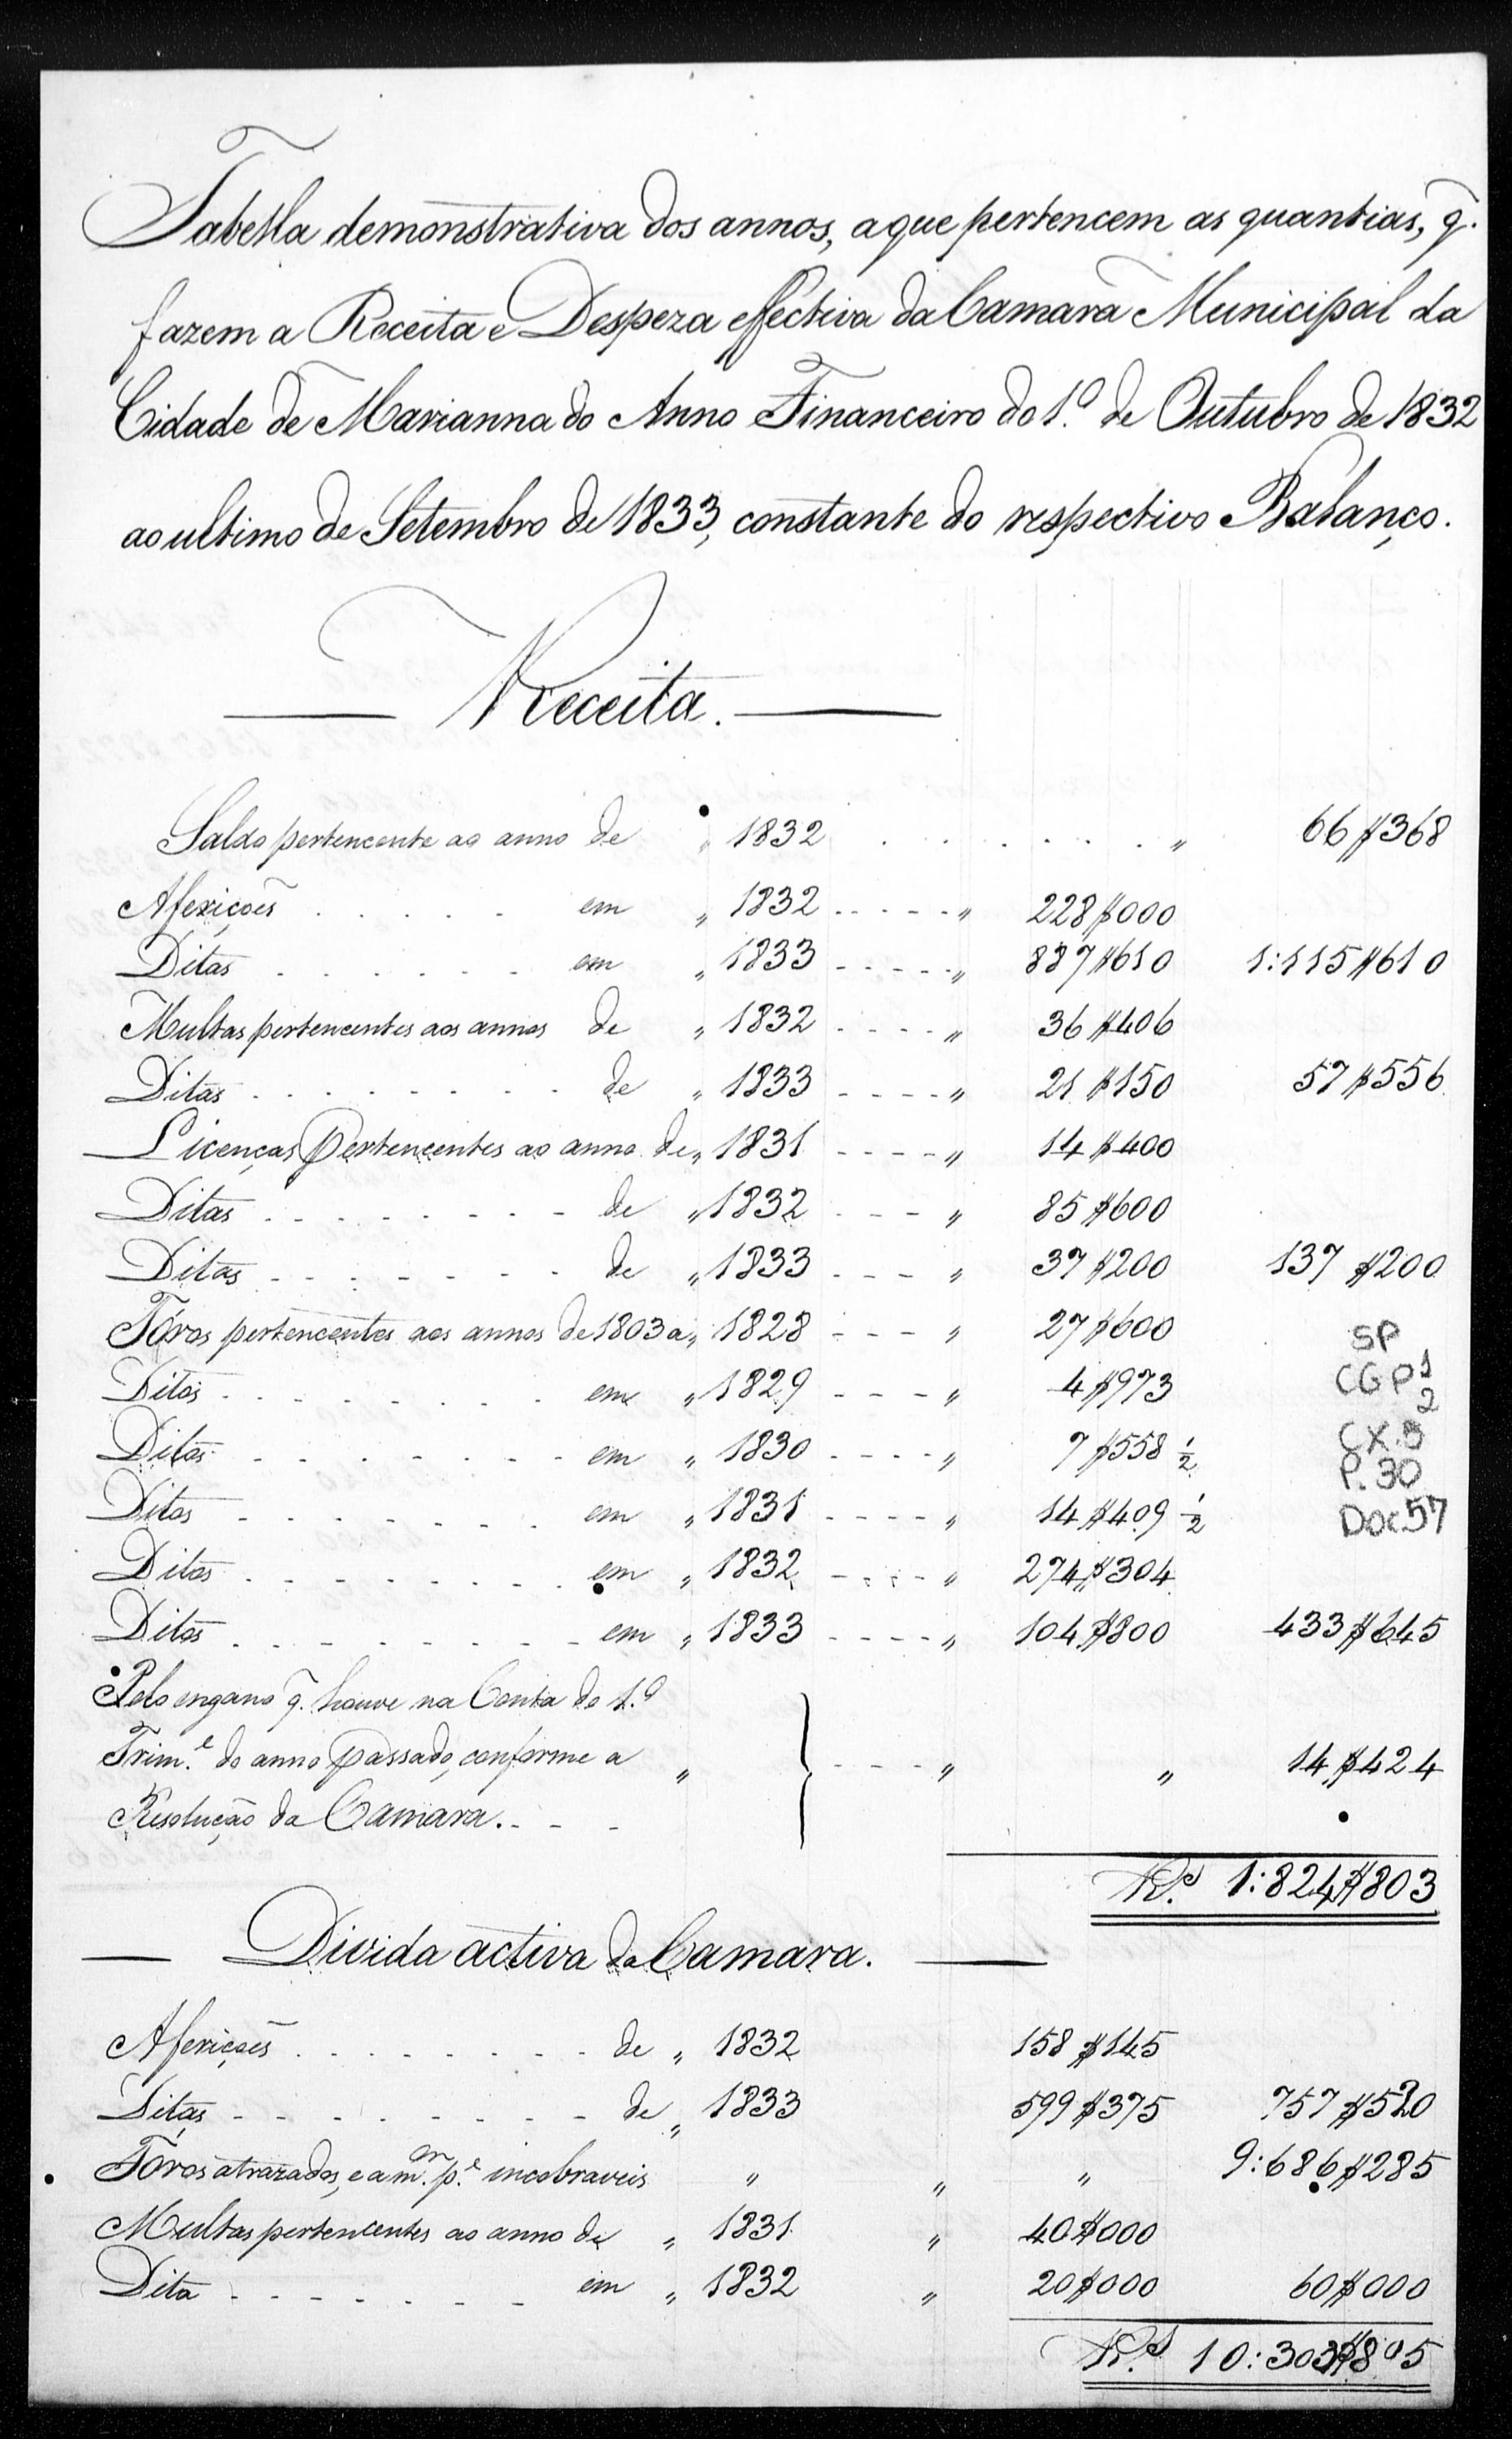 Tabella demonstrativa dos annos, a que pertencem as quantias, q.
fazem a Receita e Despeza effectiva da Camara Municipal da
Cidade de Marianna do Anno Financeiro do 1.º de Outubro de 1832
ao ultimo de Setembro de 1833, constante do respectivo Balanço.
Receita.
Saldo pertencente ao anno de " 1832 . . . . . . . " 66$368
Aferiçoẽs . . . . . em " 1832 - - - - - " 228$000
Ditas . . . . . . em " 1833 - - - - - " 887$610 1:115$610
Multas pertencentes aos annos de " 1832 - - - - " 36$406
Ditas . . . . . . . de " 1833 - - - - " 21$150 57$556
Licenças Pertencentes ao anno de " 1831 - - - - " 14$400
Ditas - - - - - - - de " 1832 - - - " 85$600
Ditas - - - - - - - de " 1833 - - - " 37$200 137$200
Fóros pertencentes aos annos de 1803 a " 1828 - - - " 27$600
Ditos - - - - - - - em " 1829 - - - " 4$973
Ditos - - - - - - - em " 1830 - - - - " 7$558 ½
Ditos - - - - - - - em " 1831 - - - - " 14$409 ½
Ditos - - - - - - - em " 1832 - - - - " 274$304
Ditos - - - - - - - em " 1833 - - - - " 104$800 433$645
SP
CGP 1
2
CX. 5
P. 30
Doc. 57
Pelo engano q. houve na Conta do 1.º
Trim.e do anno passado, conforme a " - - - " " 14$424
Resolução da Camara. - - -
R.s 1:824$803
Divida activa da Camara.
Aferiçoẽs . . . . . . . de " 1832 158$145
Ditas - - - - - - - de " 1833 599$375 757$520
Fóros atrazados, e a m.or p.e incobraveis " " " 9:686$285
Multas pertencentes ao anno de " 1831 " 40$000
Dita - - - - - - - em " 1832 " 20$000 60$000
R.s 10:303$805